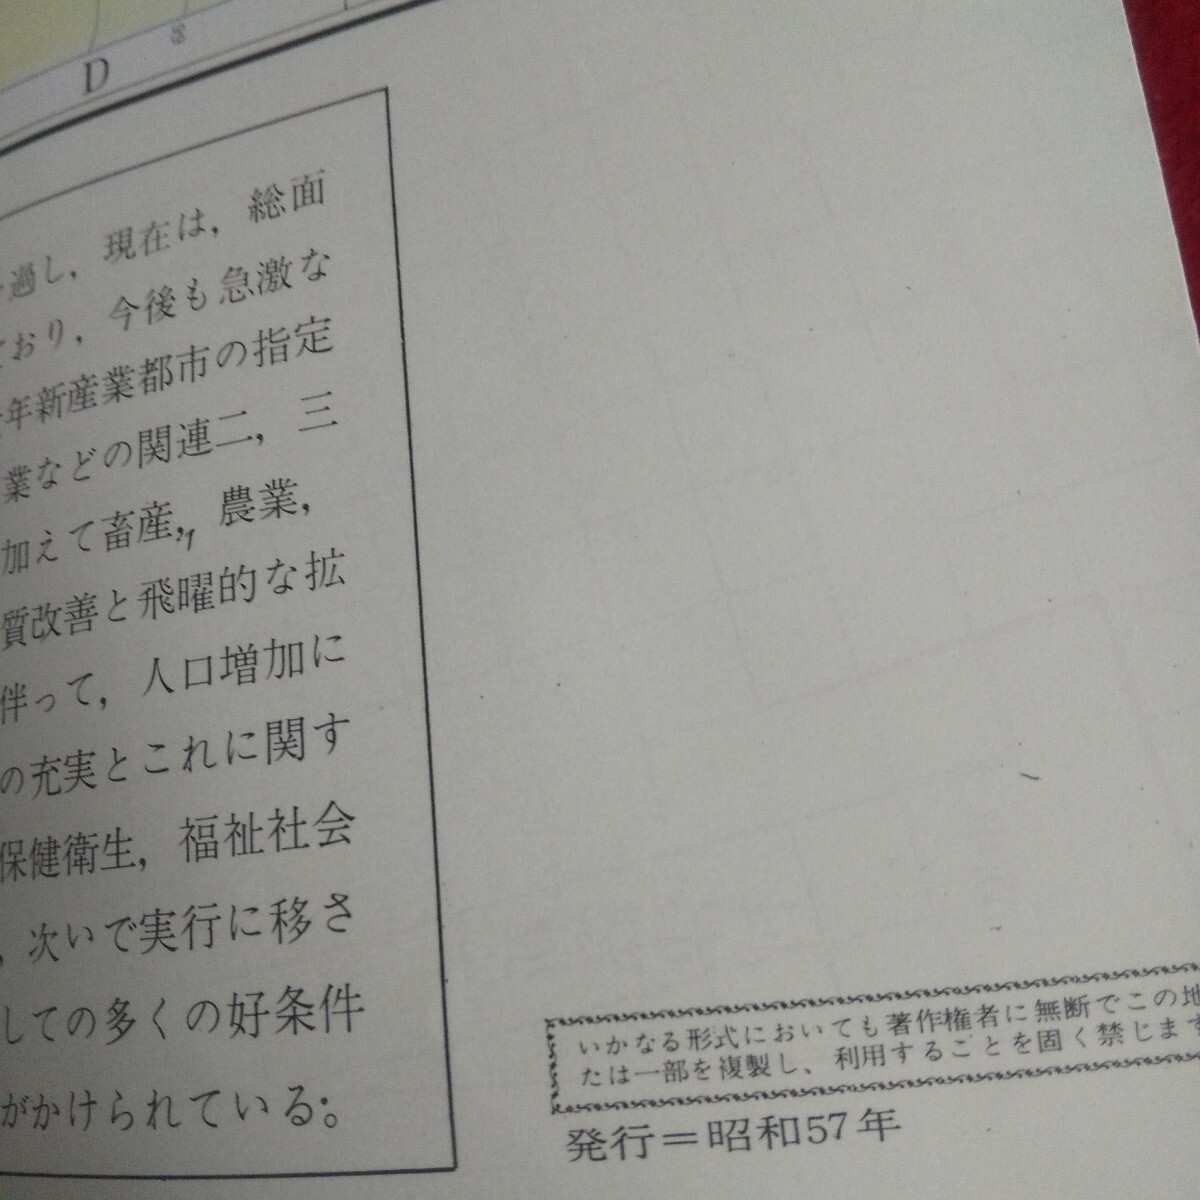 D
過し，現在は，総面
おり，今後も急激な
年新産業都市の指定
業などの関連二，三
加えて畜産，，農業，
質改善と飛曜的な拡
伴って，人口増加に
の充実とこれに関す
保健衛生，福祉社会
，次いで実行に移さ
しての多くの好条件
がかけられている。
いかなる形式においても著作権者に無断でこの地
たは一部を複製し、利用することを固く禁じます
発行＝昭和57年